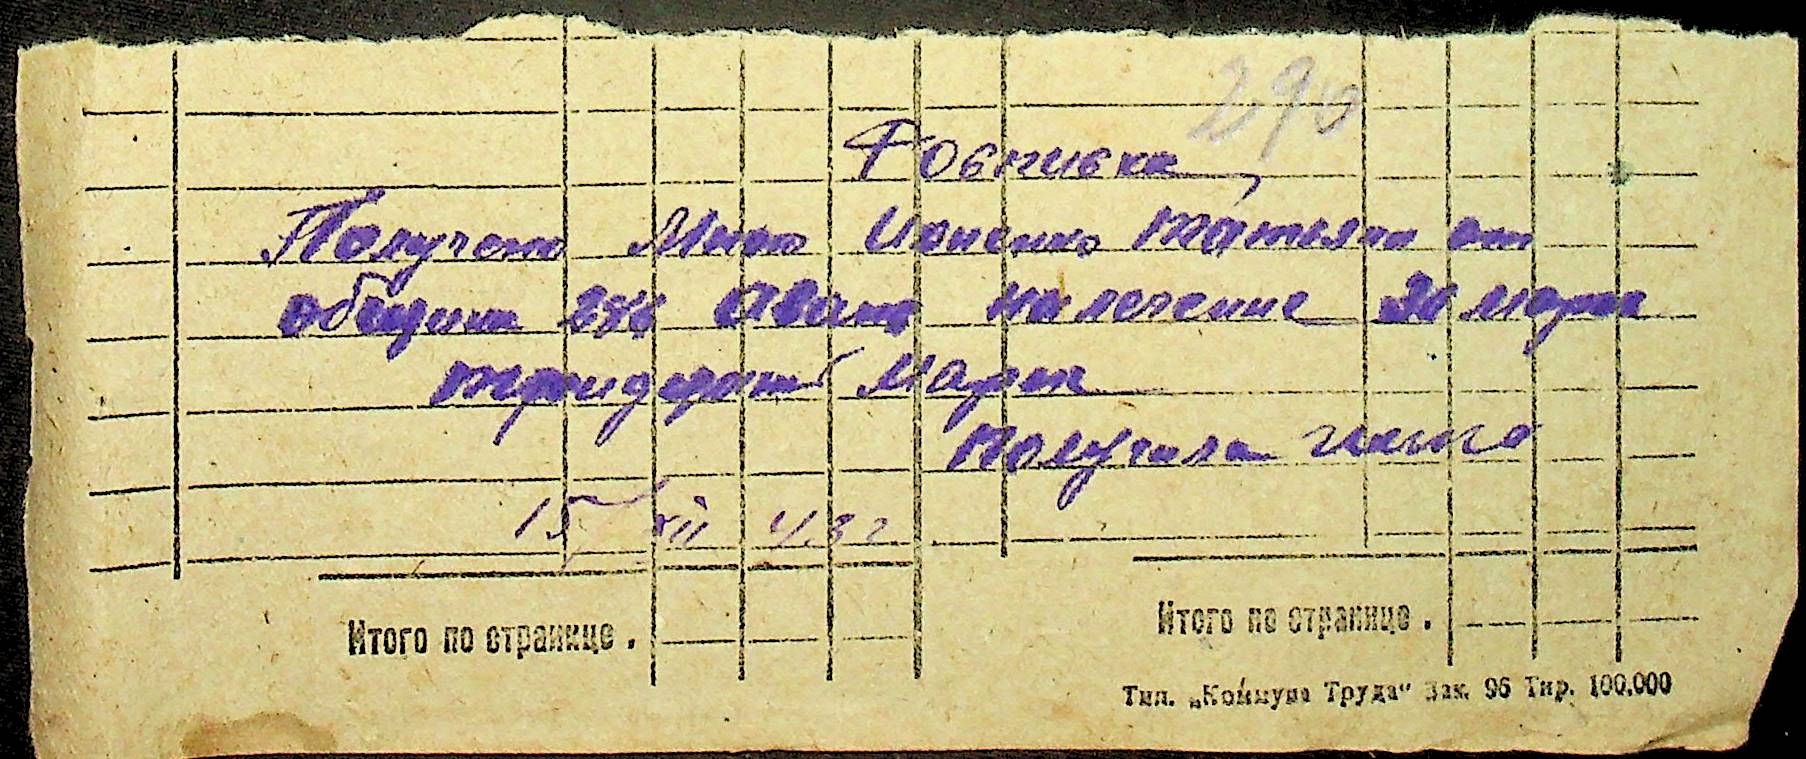 290
Росписка
Получено Мною Ионенко Татьяна от
общины аванс на лечение 30 марок
тридцать марок
Получила
15 XII 43 г
Итого по странице .
Итого по странице .
Тип. „Коммуна Труда“ Зак. 96 Тир. 100.000